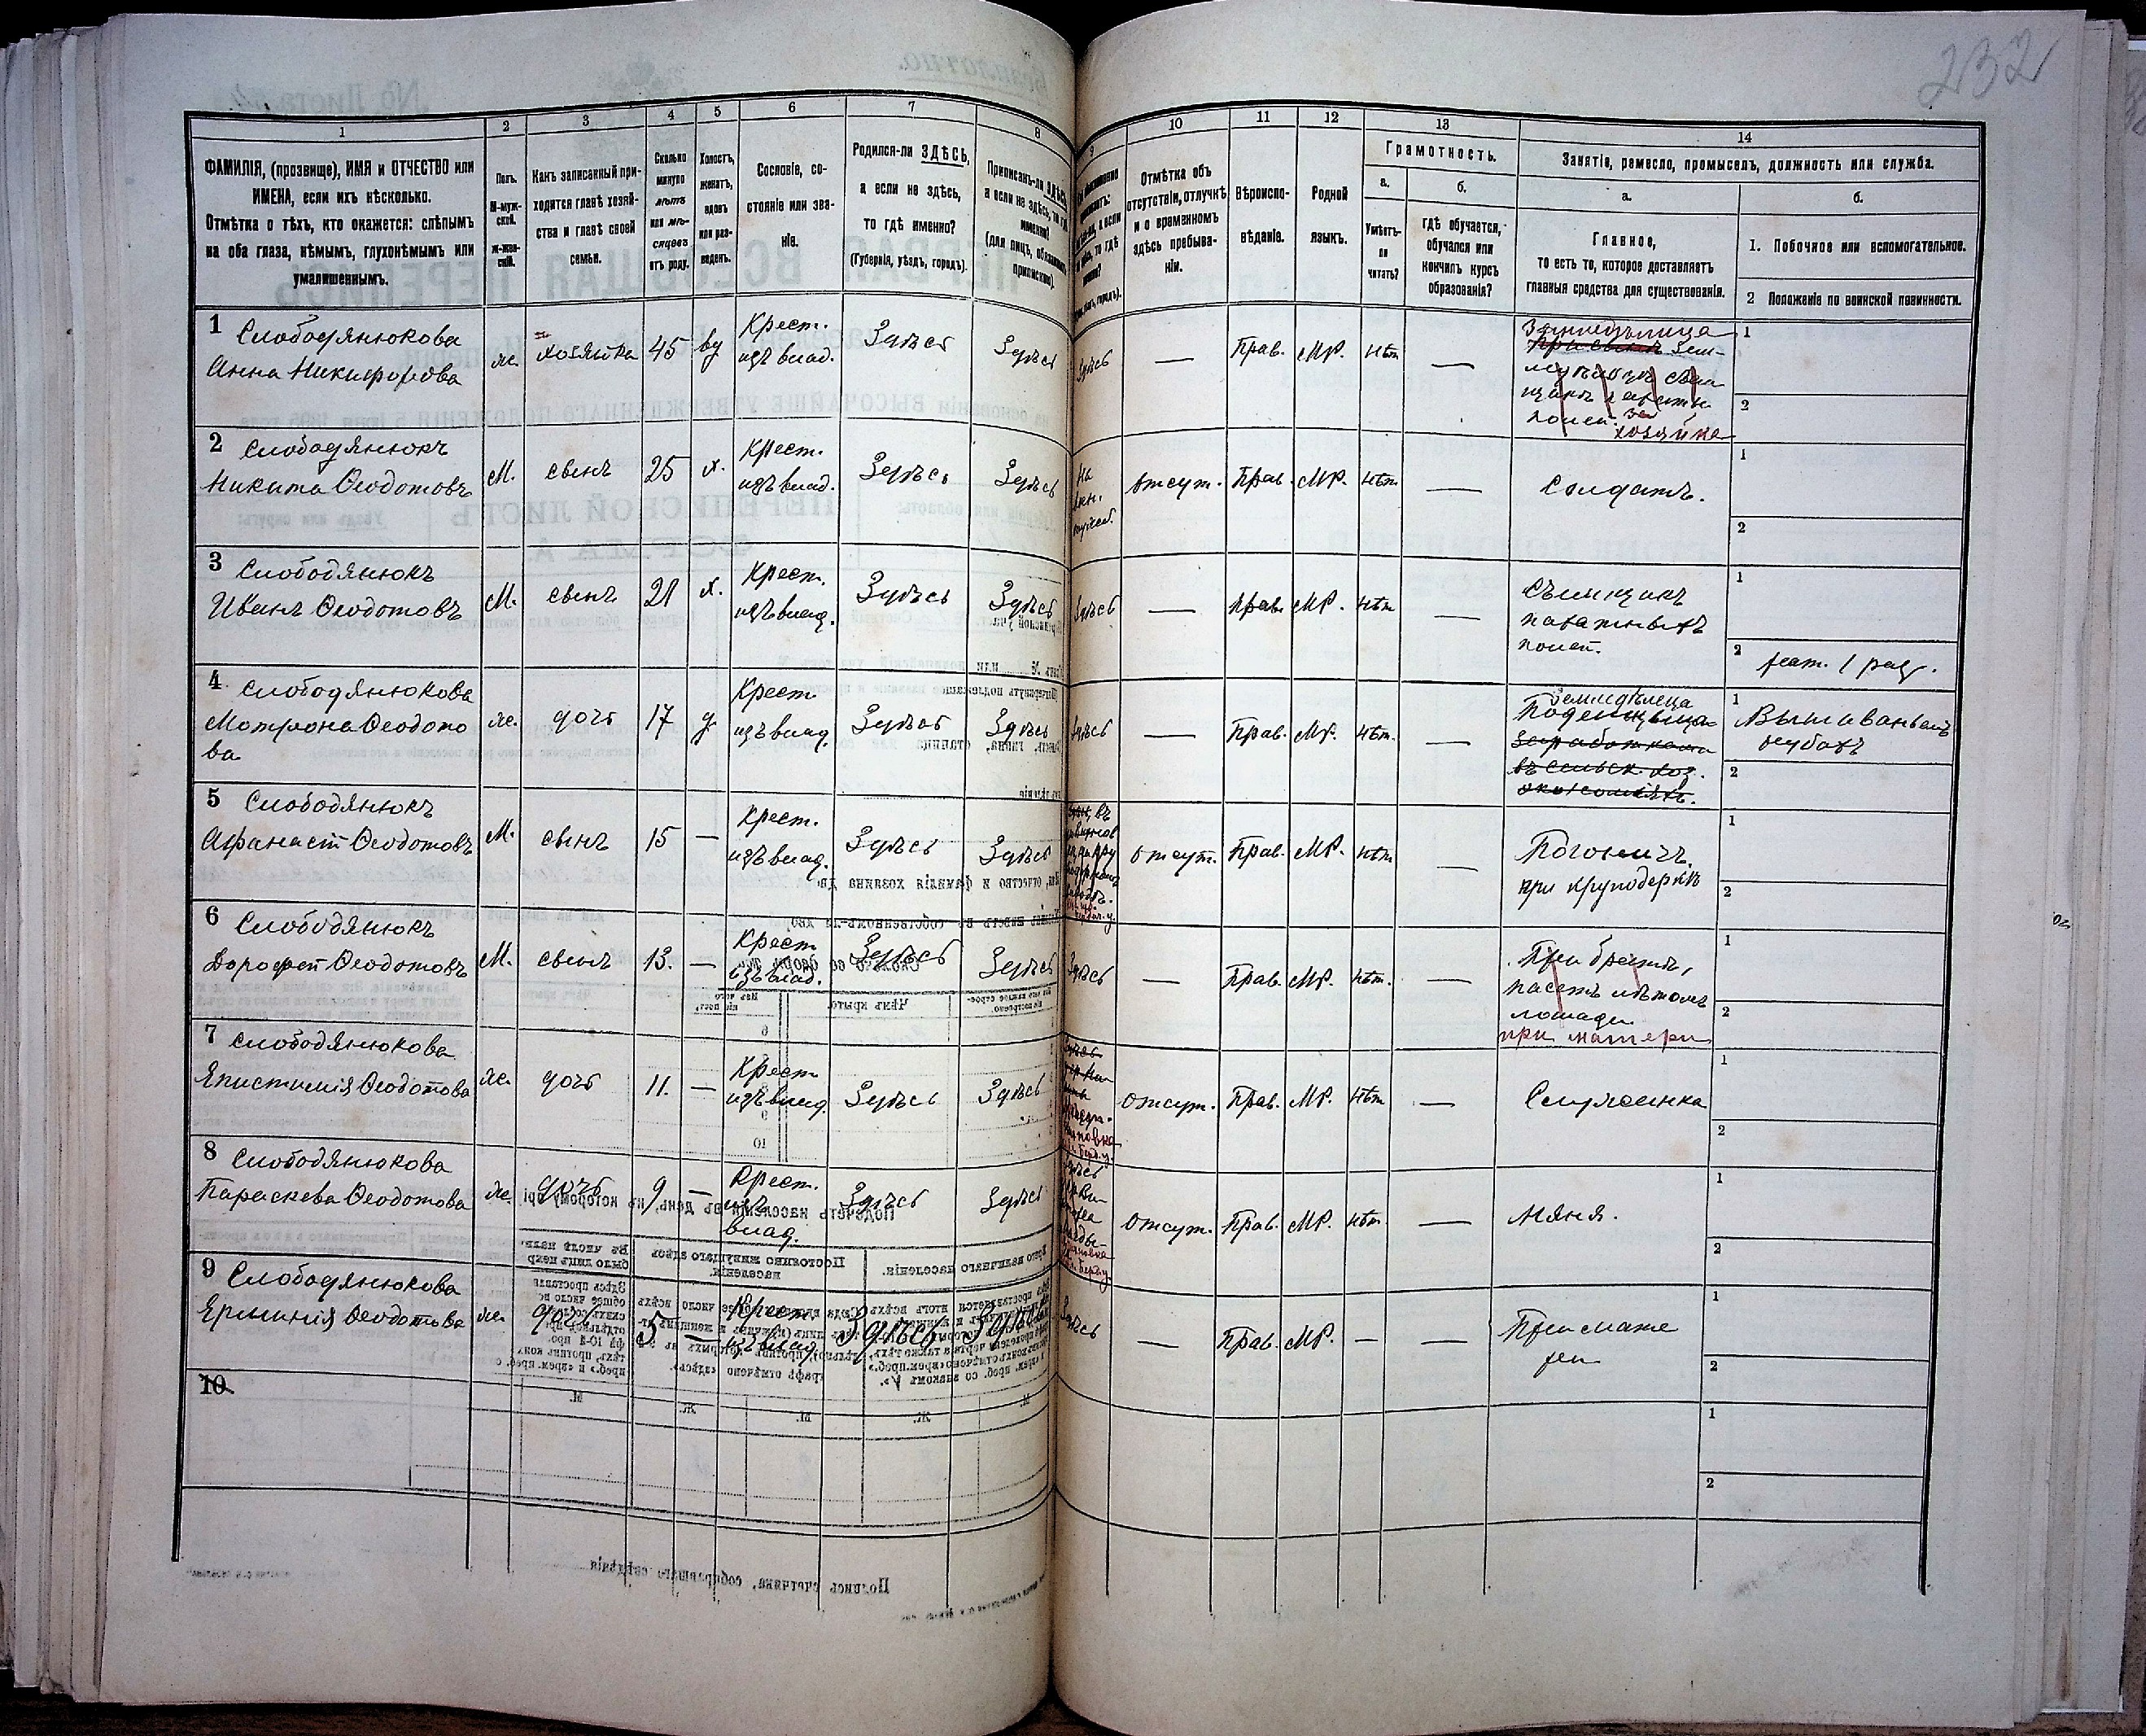 232
1 2 3 4 5 6 7 8 9 10 11 12 13 14
ФАМИЛІЯ, (прозвище), ИМЯ и ОТЧЕСТВО или
ИМЕНА, если ихъ нѣсколько.
Отмѣтка о тѣхъ, кто окажется: слѣпымъ
на оба глаза, нѣмымъ, глухонѣмымъ или
умалишеннымъ.
Полъ.
М-муж-
ской.
Ж-жен-
скій.
Какъ записанный при-
ходится главѣ хозяй-
ства и главѣ своей
семьи.
Сколько
минуло
лѣтъ
или мѣ-
сяцевъ
отъ роду.
Холостъ,
женатъ,
вдовъ
или раз-
веденъ.
Сословіе, со-
стояніе или зва-
ніе.
Родился-ли ЗДѢСЬ,
а если не здѣсь,
то гдѣ именно?
(Губернія, уѣздъ, городъ).
Приписанъ-ли ЗДѢСЬ,
а если не здѣсь, то гдѣ
именно?
(для лицъ, обязанныхъ
припискою).
Отмѣтка объ
отсутствіи, отлучкѣ
и о временномъ
здѣсь пребыва-
ніи.
Вѣроиспо-
вѣданіе.
Родной
языкъ.
Грамотность.
а.
Умѣетъ-
ли
читать?
б.
гдѣ обучается,
обучался или
кончилъ курсъ
образованія?
Занятіе, ремесло, промыселъ, должность или служба.
а.
Главное,
то есть то, которое доставляетъ
главныя средства для существованія.
б.
1. Побочное или вспомогательное.
2 Положеніе по воинской повинности.
1 Слободянюкова
Анна Никифорова
ж. хозяйка 45 вд
Крест.
изъ влад.
Здѣсь Здѣсь Здѣсь — Прав. МР. нѣт —
хозяйка
1
2
2 Слободянюкъ
Никита Ѳеодотовъ
М. сынъ 25 х.
Крест.
изъ влад.
Здѣсь Здѣсь
отсут. Прав. МР. нѣт — Солдатъ.
1
2
3 Слободянюкъ
Иванъ Ѳеодотовъ
М. сынъ 21 х.
Крест.
изъ влад.
Здѣсь Здѣсь Здѣсь — Прав. МР. нѣт —
Съемщикъ
пахатныхъ
полей.
1
2
4 Слободянюкова
Мотрона Ѳеодото
ва
ж. дочь 17 д.
Крест
изъ влад.
Здѣсь Здѣсь Здѣсь — Прав. МР. нѣт. —
1
Вышиваньемъ
рубахъ
2
5 Слободянюкъ
Афанасій Ѳеодотовъ
М. сынъ 15 —
Крест.
изъ влад.
Здѣсь Здѣсь
отсут. Прав. МР. нѣт —
Погоничъ
при круподеркѣ
1
2
6 Слободянюкъ
Дорофей Ѳеодотовъ
М. сынъ 13. —
Крест
изъ влад.
Здѣсь Здѣсь Здѣсь — Прав. МР. нѣт. —
При братѣ,
пасетъ лѣтомъ
лошади
при матери
1
2
7 Слободянюкова
Епистимія Ѳеодотова
ж. дочь 11. —
Крест
изъ влад
Здѣсь Здѣсь
отсут. Прав. МР. нѣт — Служанка
1
2
8 Слободянюкова
Параскева Ѳеодотова
ж. дочь 9 —
Крест.
изъ
влад.
Здѣсь Здѣсь
отсут. Прав. МР. нѣт. — Няня.
1
2
9 Слободянюкова
Ерминія Ѳеодотова
ж. дочь 5 —
Крест.
изъ влад.
Здѣсь Здѣсь Здѣсь — Прав. МР. — —
При мате
ри
1
2
10
1
2